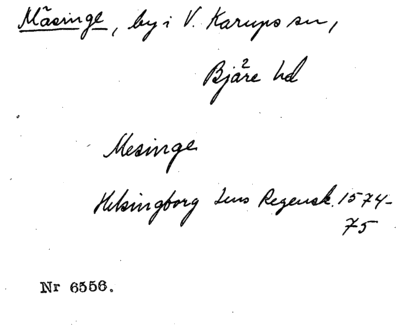 Mäsinge, by i V. Karups sn,
Bjäre hd
Mesinge
Helsingborg Lens Regensk. 1574-
75
Nr 6556.